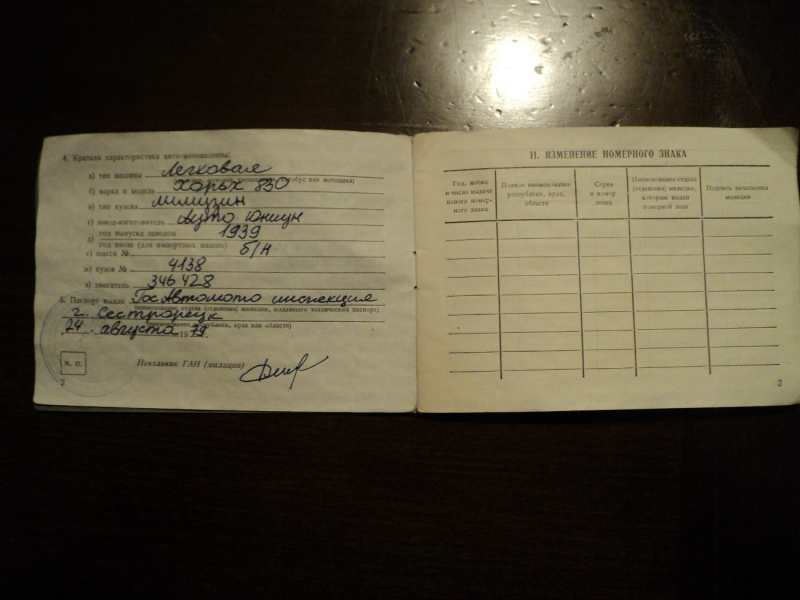 4. Краткая характеристика авто-мотомашины:
а) тип машины Легковая
автобус или мотоцикл)
б) марка и модель Хорьх 830
в) тип кузова Лимузин
г) завод-изготовитель Ауто Юнион
д) год выпуска заводом 1939
год ввоза (для импортных машин)
е) шасси № б/н
ж) кузов № 4138
з) двигатель 346428
5. Паспорт выдан ГосАвтомото инспекция
(отделения) милиции, выдавшего технический паспорт)
г. Сестрорецк
республики, края или области)
24. августа 1979.
М. П.
Начальник ГАИ (милиции)
2
II. ИЗМЕНЕНИЕ НОМЕРНОГО ЗНАКА
Год, месяц и число выдачи нового номерного знака
Полное наименование республики, края, области
Серия и номер знака
Наименование отдела (отделения) милиции, которым выдан номерной знак
Подпись начальника милиции
3